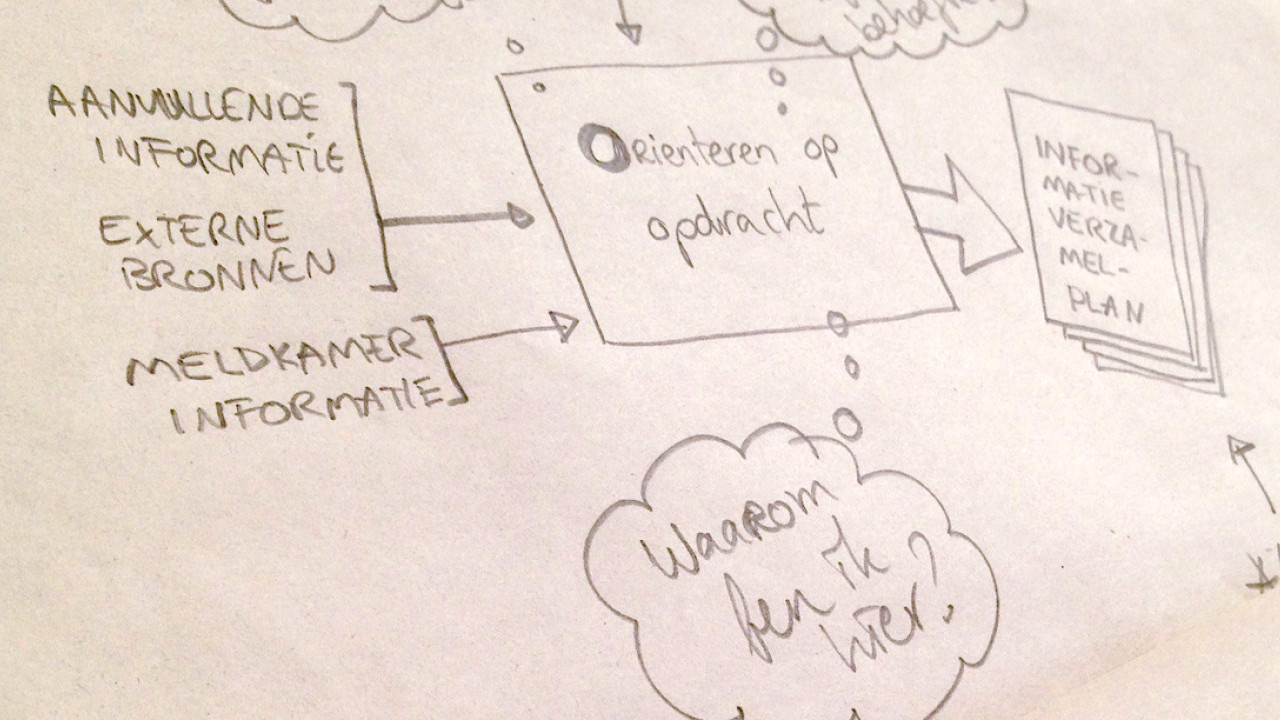 AANVULLENDE
INFORMATIE
EXTERNE
BRONNEN
MELDKAMER
INFORMATIE
Oriënteren op
opdracht
INFOR-
MATIE
VERZA-
MEL-
PLAN
Waarom
ben ik
hier?